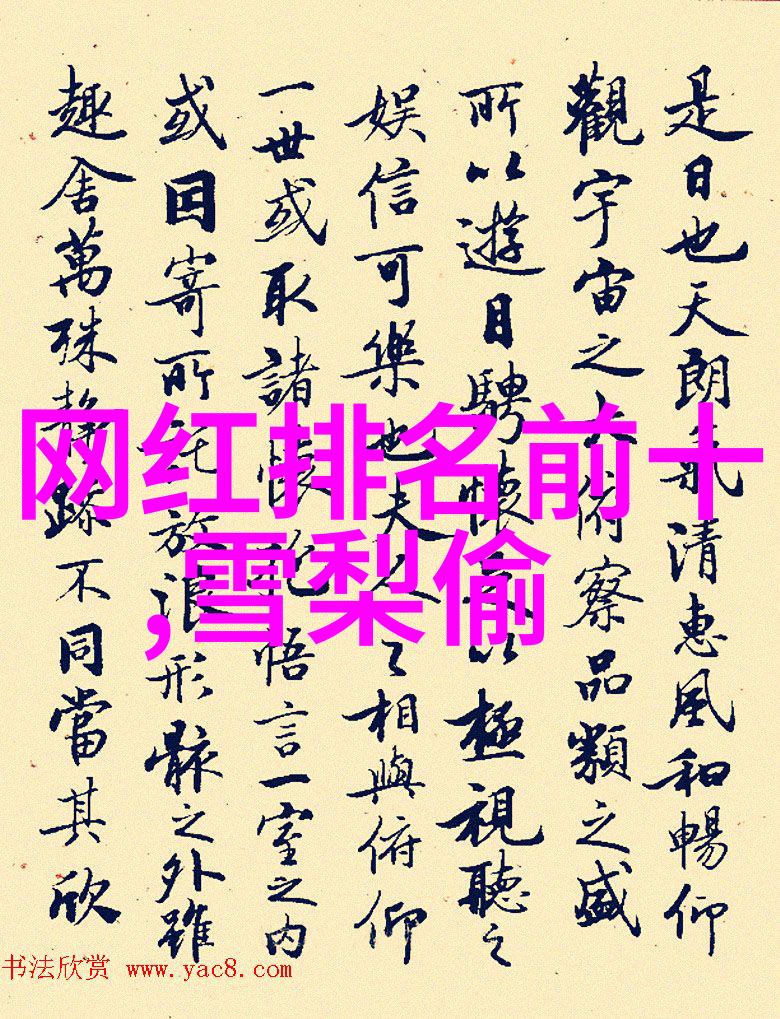 是日也天朗氣清惠風和暢仰
觀宇宙之大俯察品類之盛
所以遊目騁懷足以極視聽之
娱信可樂也夫人之相與俯仰
一世或取諸懷抱悟言一室之内
或因寄所託放浪形骸之外雖
趣舍萬殊静躁不同當其欣
网红排名前十
,雪梨偷
书法欣赏 www.yac8.com